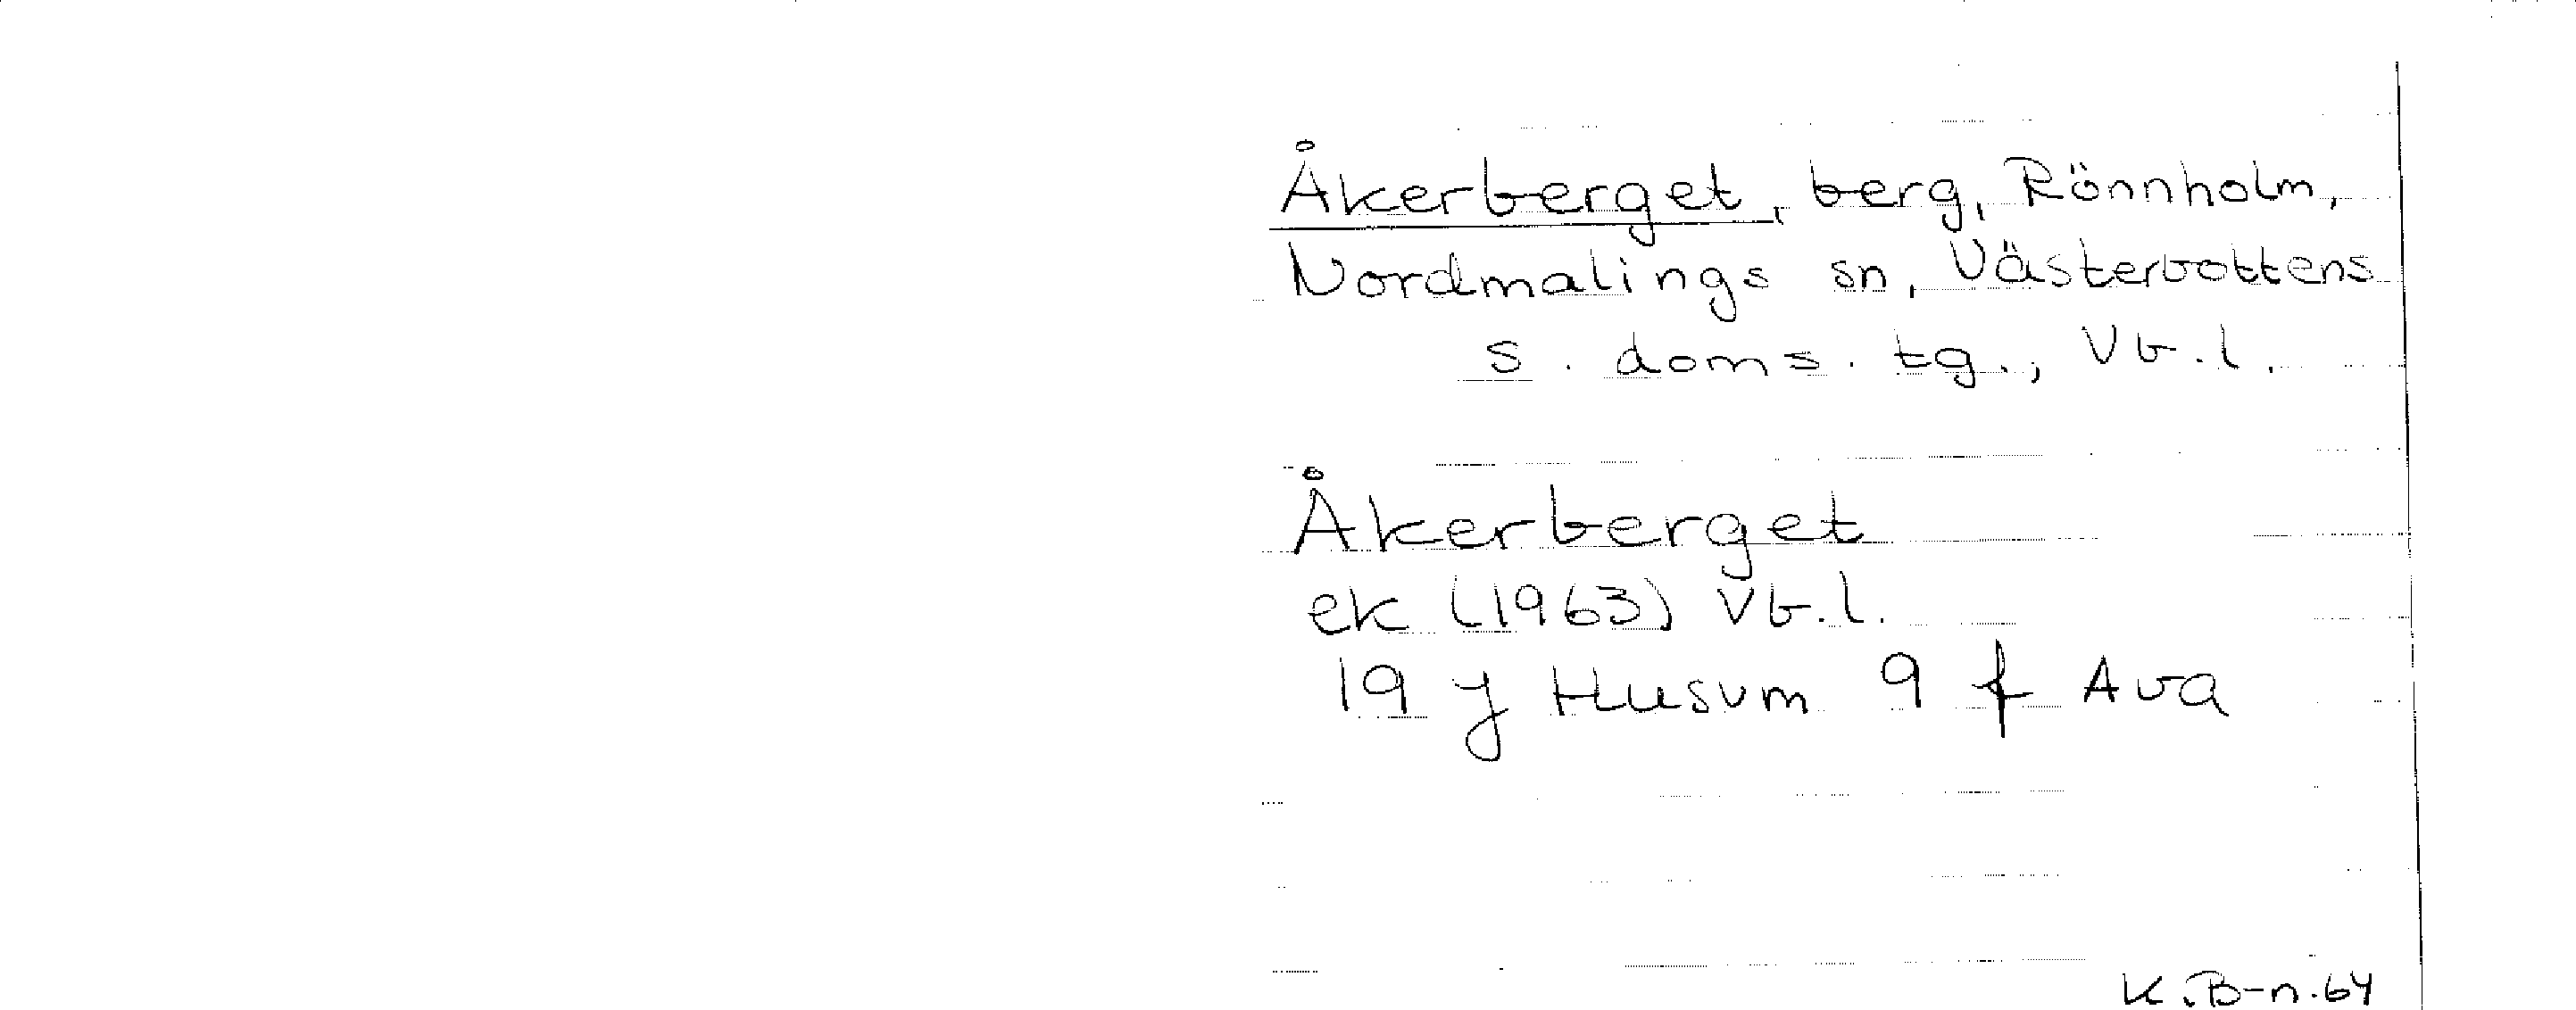 Åkerberget, berg, Rönnholm,
Nordmalings sn, Västerbottens
s. doms. tg., Vb.l.
Åkerberget
ek (1963) Vb.l.
19 J Husum 9 f Ava
K.B-n.64